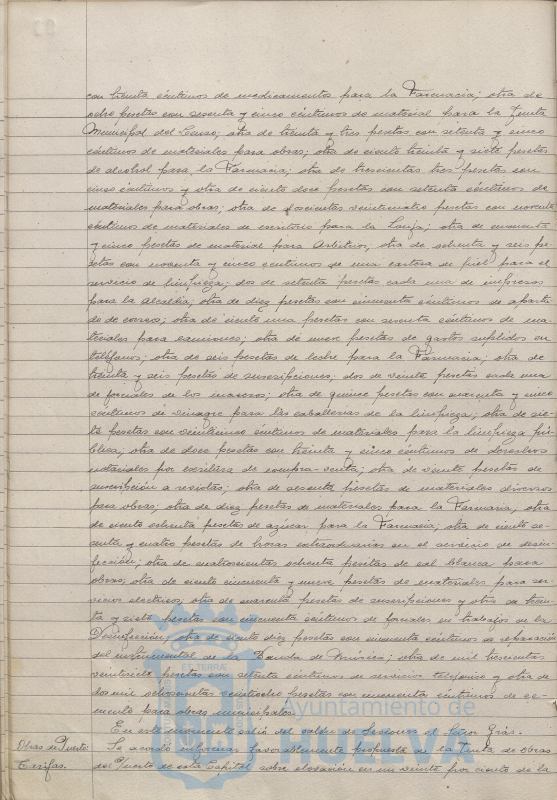 con treinta céntimos de medicamentos para la Farmacia; otra de
ocho pesetas con sesenta y cinco céntimos de material para la Junta
Municipal del Censo; otra de treinta y tres pesetas con setenta y cinco
céntimos de materiales para obras; otra de ciento treinta y siete pesetas
de alcohol para la Farmacia; otra de trescientas tres pesetas con
cinco céntimos y otra de ciento doce pesetas con setenta céntimos de
materiales para obras; otra de doscientas veinticuatro pesetas con noventa
céntimos de materiales de escritorio para la Lonja; otra de cincuenta
y cinco pesetas de material para Arbitrios; otra de ochenta y seis pe-
setas con noventa y cinco céntimos de una cartera de piel para el
servicio de limpieza; dos de setenta pesetas cada una de impresos
para la Alcaldía; otra de diez pesetas con cincuenta céntimos de aparta
do de correos; otra de ciento una pesetas con sesenta céntimos de ma-
teriales para camiones; otra de nueve pesetas de gastos suplidos en
teléfonos; otra de seis pesetas de leche para la Farmacia; otra de
treinta y seis pesetas de suscripciones; dos de veinte pesetas cada una
de jornales de los maceros; otra de quince pesetas con cuarenta y cinco
céntimos de vinagre para las caballerías de la limpieza; otra de sie-
te pesetas con veinticinco céntimos de materiales para la limpieza pú-
blica; otra de doce pesetas con treinta y cinco céntimos de derechos
notariales por escritura de compra-venta; otra de veinte pesetas de
suscripción a revistas; otra de sesenta pesetas de materiales diversos
para obras; otra de diez pesetas de materiales para la Farmacia, otra
de ciento ochenta pesetas de azúcar para la Farmacia; otra de ciento se-
tenta y cuatro pesetas de horas extraordinarias en el servicio de desin-
fección; otra de cuatrocientas ochenta pesetas de cal blanca para
obras; otra de ciento cincuenta y nueve pesetas de materiales para ser-
vicios electricos; otra de cuarenta pesetas de suscripciones y otra de trein-
ta y siete pesetas con cincuenta céntimos de jornales en trabajos en la
Desinfección; otra de ciento diez pesetas con cincuenta céntimos de reparación
del instrumental de la Banda de Música; otra de mil trescientas
veintisiete pesetas con setenta céntimos de servicio telefonico y otra de
dos mil ochocientas veintiocho pesetas con cincuenta céntimos de ce-
mento para obras municipales.
En este momento salió del salón de Sesiones el Señor Grás.
Obras de Puerto Se acordó informar favorablemente propuesta de la Junta de Obras
Tarifas. del Puerto de esta Capital sobre elevación en un veinte por ciento de la
ES TERRA
Ayuntamiento de
HUELVA